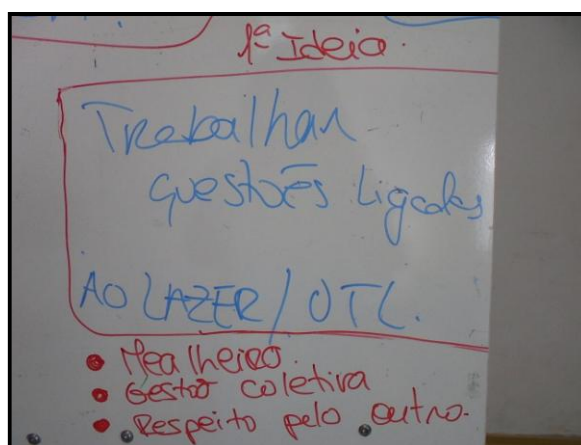 1ª Ideia.
Trabalhar
questões ligadas
AO LAZER/OTL.
• Mealheiro.
• Gestão coletiva
• Respeito pelo outro.